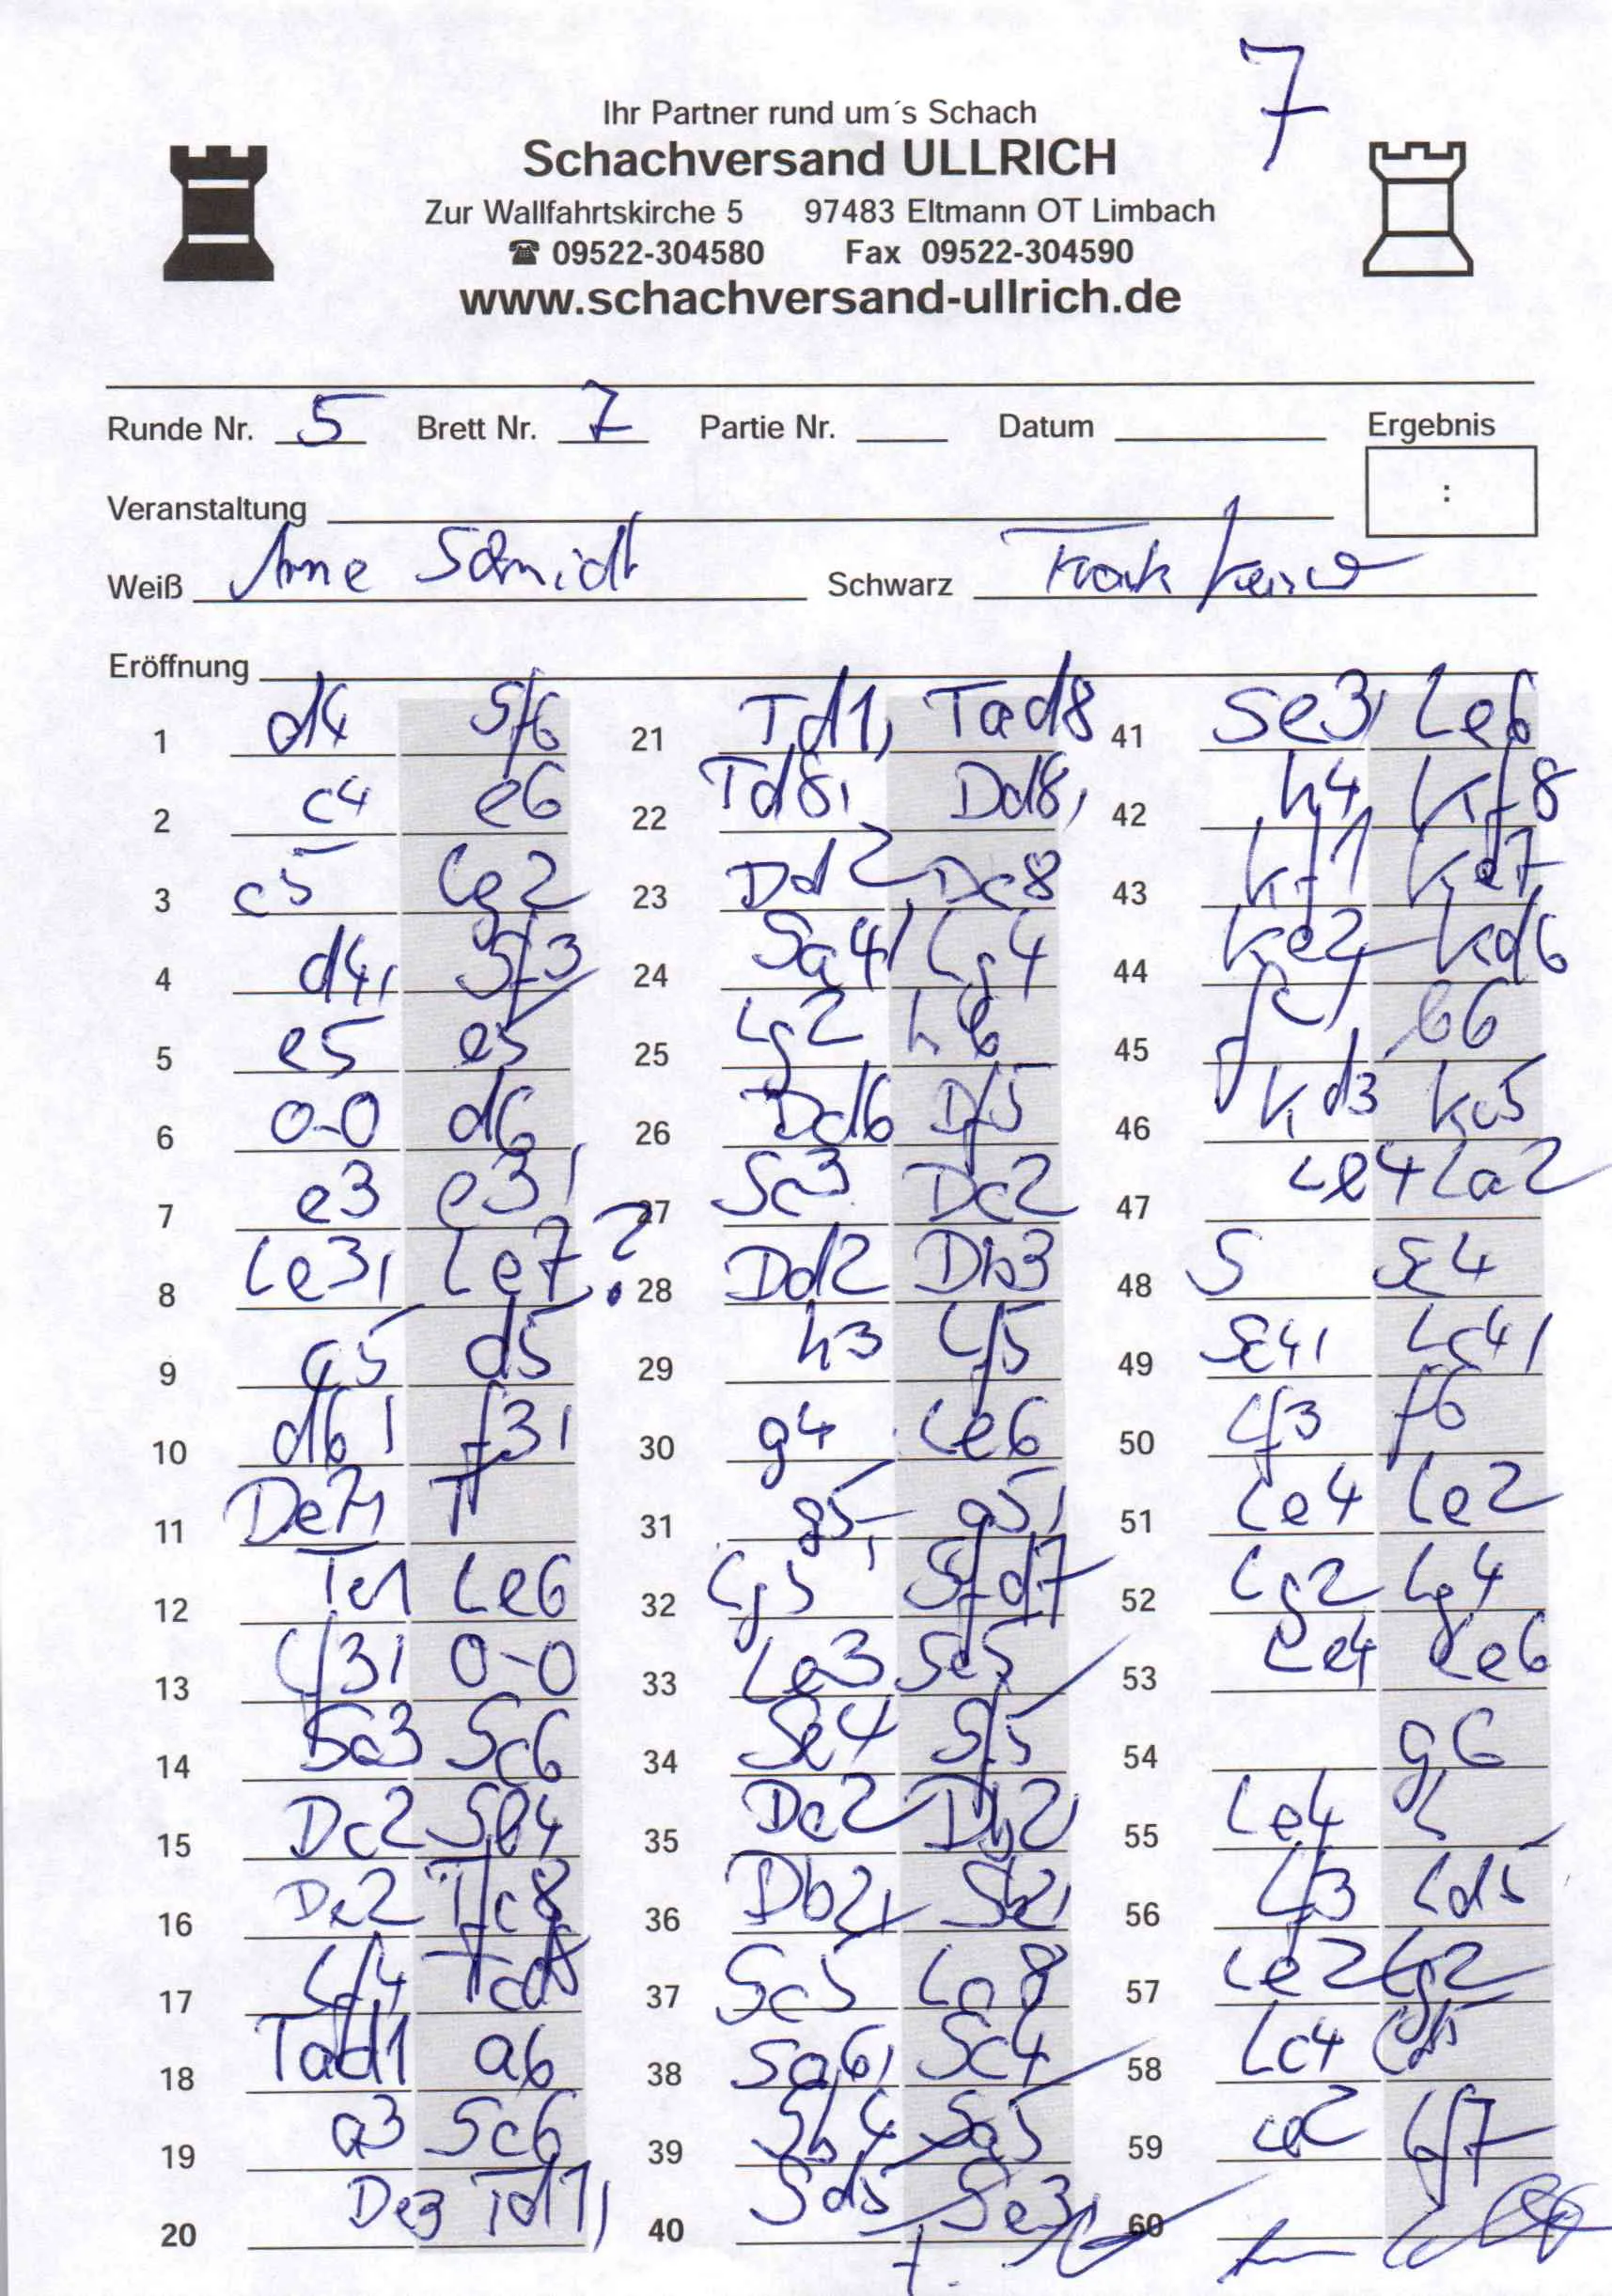 7
Ihr Partner rund um´s Schach
Schachversand ULLRICH
Zur Wallfahrtskirche 5 97483 Eltmann OT Limbach
☎ 09522-304580 Fax 09522-304590
www.schachversand-ullrich.de
Runde Nr. 5 Brett Nr. 7 Partie Nr. Datum Ergebnis
:
Veranstaltung
Weiß Arne Schmidt Schwarz Frank
Eröffnung
1 d4 Sf6 21 Td1, Tad8 41 Se3, Le6
2 c4 e6 22 Td8, Dd8, 42 h4 Kf8
3 c5 Lg2 23 Dd2 Dc8 43 Kf1 Ke7
4 d4, Sf3 24 Sa4 Lg4 44 Ke2 Kd6
5 e5 e5 25 Lg2 h6 45 b6
6 0-0 d6 26 Dd6 Df5 46 Kd3 Kc5
7 e3 e3, 27 Sc3 Dc2 47 Le4 La2
8 Le3, Le7? 28 Dd2 Db3 48 S Sc4
9 c5 d5 29 h3 Lf5 49 Sc4, Lc4,
10 d6, f3, 30 g4 Le6 50 Lf3 f6
11 De7, T 31 g5, g5, 51 Le4 Le2
12 Te1 Le6 32 Lg5 Sfd7 52 Lg2 Lg4
13 Lf3, 0-0 33 Le3 Sc5 53 Le4 Le6
14 Sc3 Sc6 34 Se4 54 g6
15 Dc2 35 Dc2 Db2, 55 Le4 L
16 De2 Tfc8 36 Db2, Sb2, 56 Lf3 Ld5
17 Lf4 Tcd8 37 Sc5 La8 57 Le2 Lg2
18 Tad1 a6 38 Sa6, Sc4 58 Lc4 Ld5
19 a3 Sc6 39 Sb4 Sa5 59 Lf7
20 De3 Td1, 40 Sd5 Se3, 60